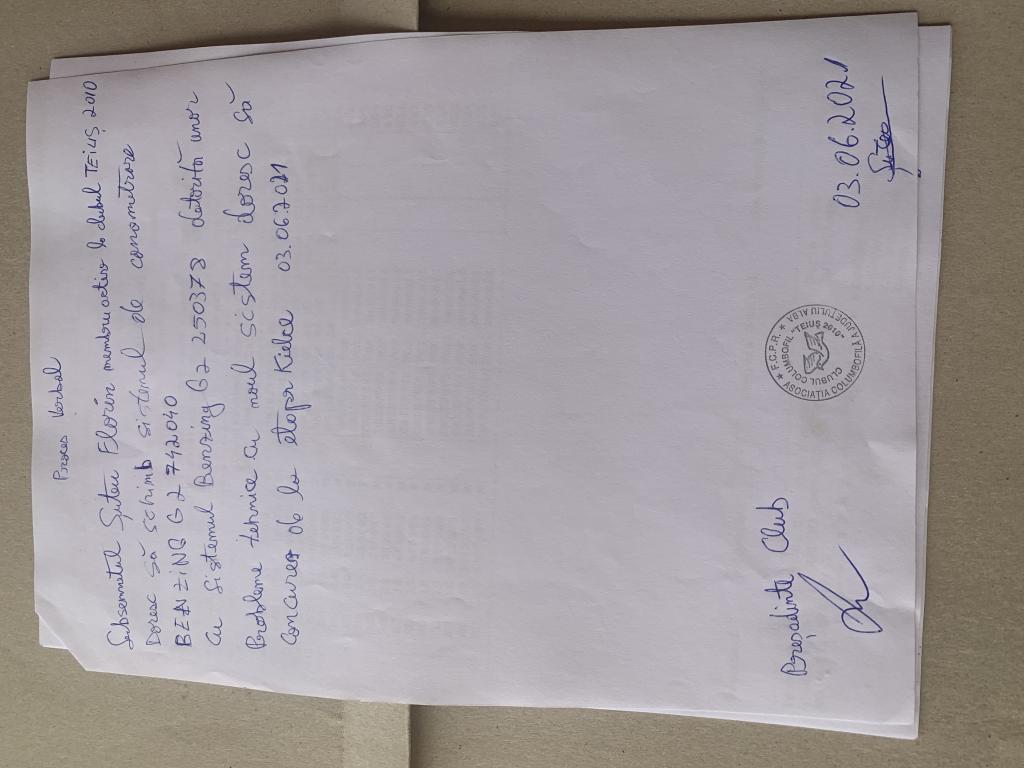 Proces Verbal
Subsemnatul Șuteu Florin membru activ la clubul TEIUȘ 2010
Doresc să schimb sistemul de conometrare
BENZING G2 742040
Cu sistemul Benzing G2 250378 datorită unor
Probleme tehnice cu noul sistem doresc să
Concurez de la etapa Kielce 03.06.2021
Președinte Club
03.06.2021
Șuteu
* F.C.P.R. *
ASOCIAȚIA COLUMBOFILĂ A JUDEȚULUI ALBA
CLUBUL COLUMBOFIL "TEIUȘ 2010"